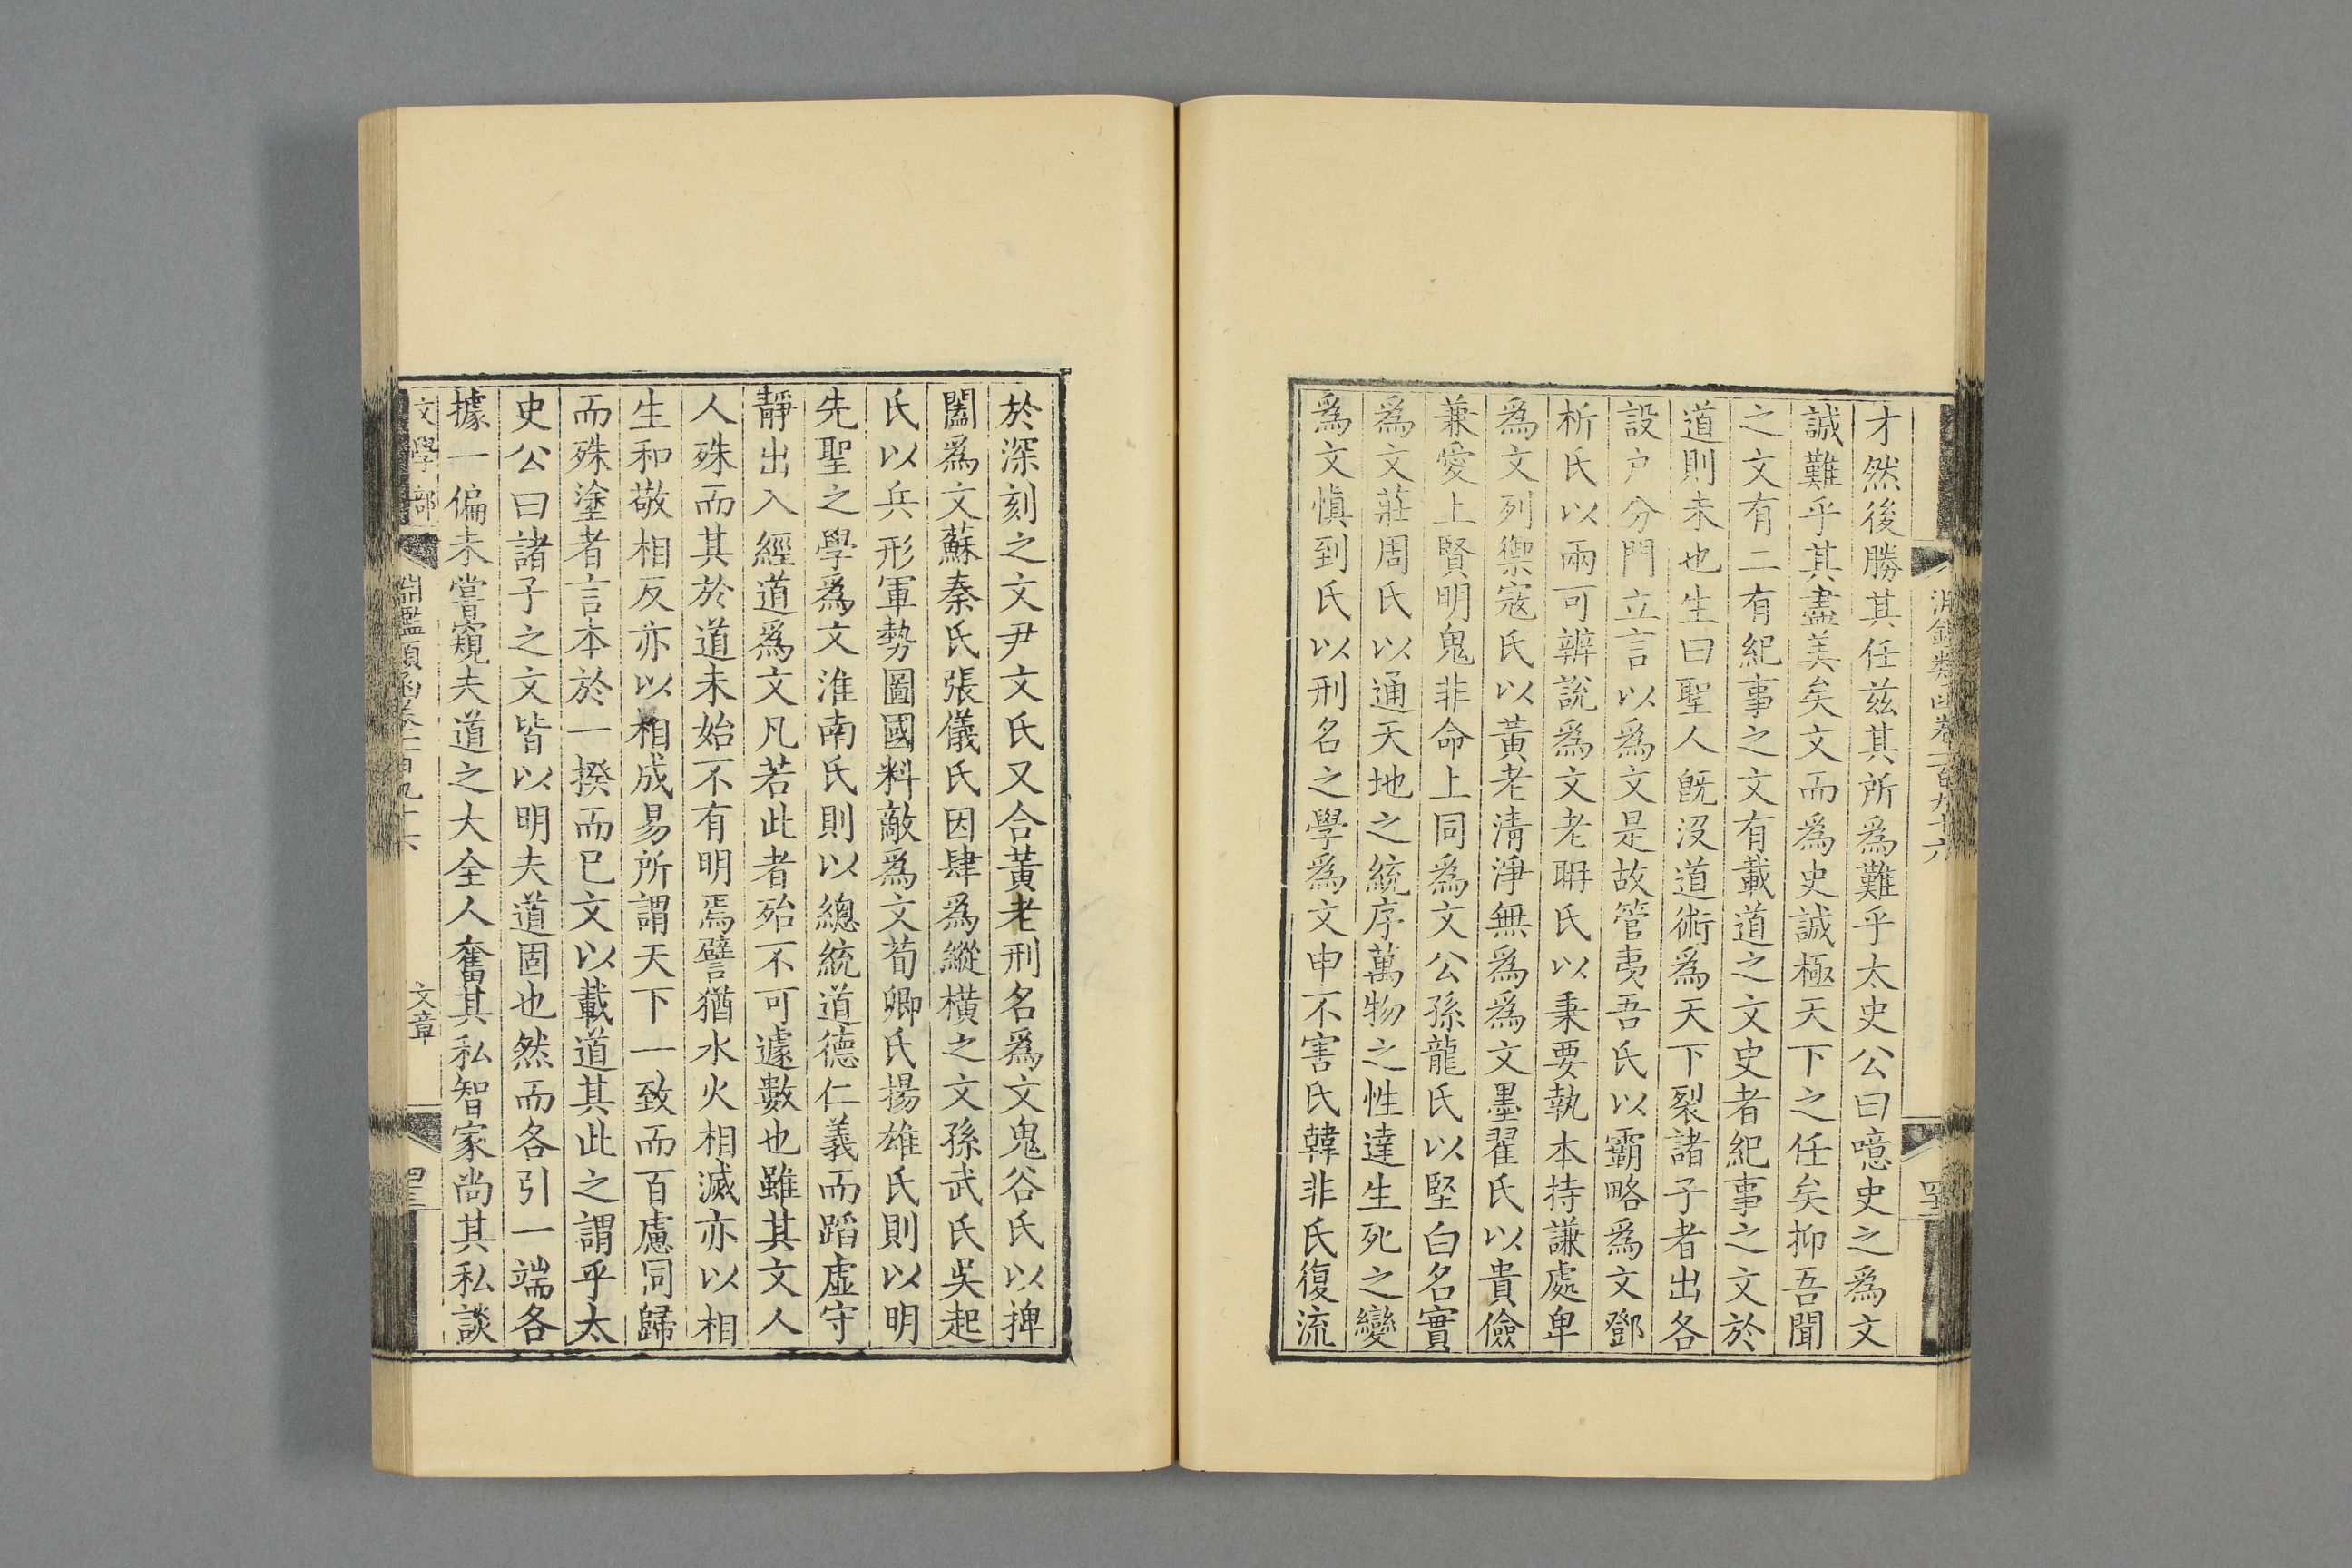 才然後勝其任茲其所爲難乎太史公曰噫史之爲文
誠難乎其盡美矣文而爲史誠極天下之任矣抑吾聞
之文有二有紀事之文有載道之文史者紀事之文於
道則未也生曰聖人旣沒道術爲天下裂諸子者出各
設戶分門立言以爲文是故管夷吾氏以霸略爲文鄧
析氏以兩可辨說爲文老聃氏以秉要執本持謙處卑
爲文列禦寇氏以黃老清淨無爲爲文墨翟氏以貴儉
兼愛上賢明鬼非命上同爲文公孫龍氏以堅白名實
爲文莊周氏以通天地之統序萬物之性達生死之變
爲文愼到氏以刑名之學爲文申不害氏韓非氏復流
於深刻之文尹文氏又合黃老刑名爲文鬼谷氏以捭
闔爲文蘇秦氏張儀氏因肆爲縱橫之文孫武氏吳起
氏以兵形軍勢圖國料敵爲文荀卿氏揚雄氏則以明
先聖之學爲文淮南氏則以總統道德仁義而蹈虛守
靜出入經道爲文凡若此者殆不可遽數也雖其文人
人殊而其於道未始不有明焉譬猶水火相滅亦以相
生和敬相反亦以相成易所謂天下一致而百慮同歸
而殊塗者言本於一揆而已文以載道其此之謂乎太
史公曰諸子之文皆以明夫道固也然而各引一端各
據一偏未嘗窺夫道之大全人奮其私智家尚其私談
文學部 淵鑑類函卷一百九十六 文章